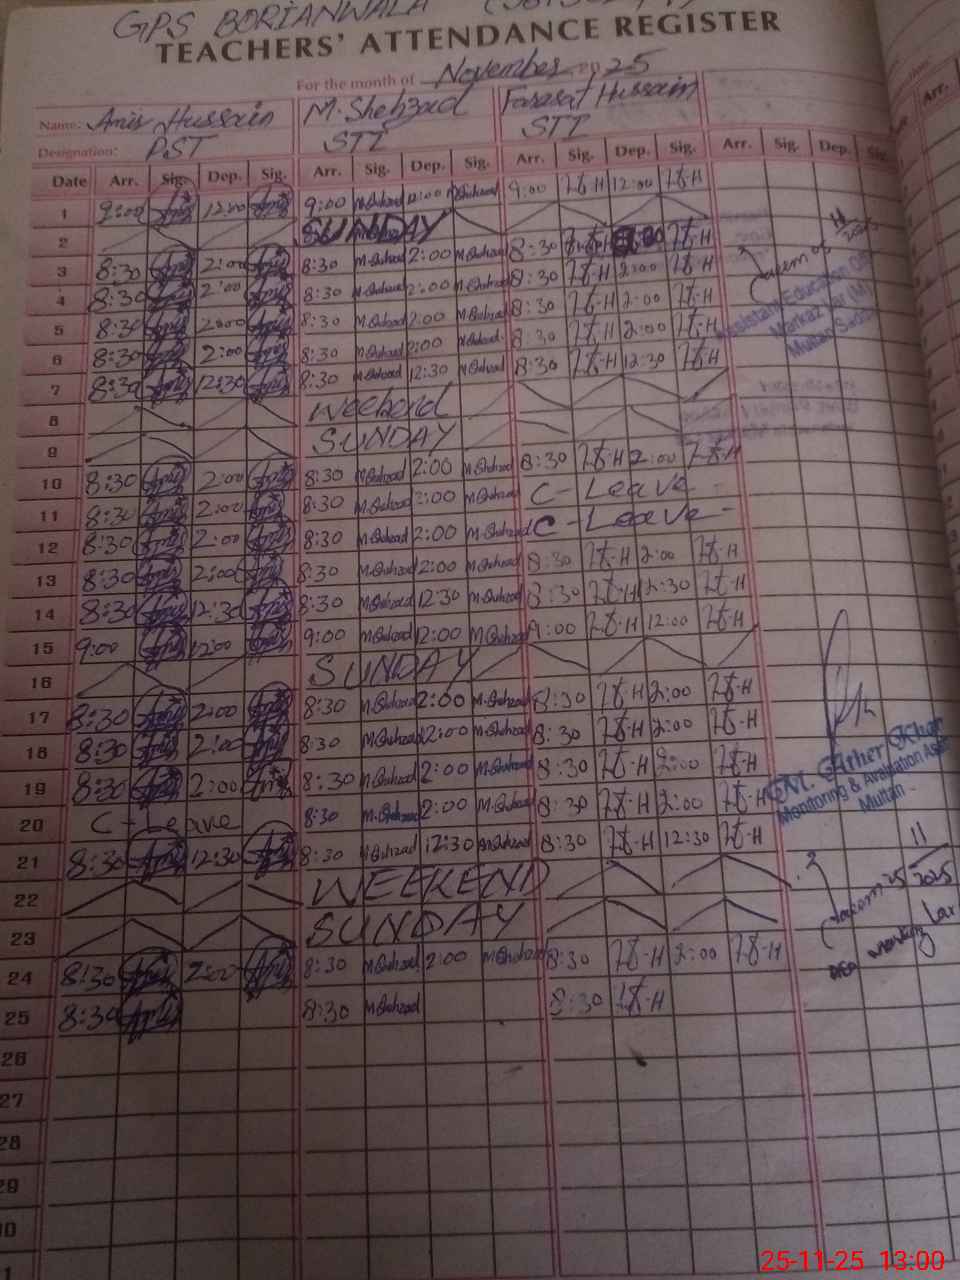 GPS BORIANWALA
TEACHERS' ATTENDANCE REGISTER
For the month of November 2025
Name: Amir Hussain M. Shehzad Farasat Hussain
Designation: PST STI STI
Date Arr. Sig. Dep. Sig. Arr. Sig. Dep. Sig. Arr. Sig. Dep. Sig. Arr. Sig. Dep. Sig. Arr.
1 9:00 12:00 9:00 M.Shehzad 12:00 M.Shehzad 9:00 F.H 12:00 F.H
2 SUNDAY
3 8:30 2:00 8:30 M.Shehzad 2:00 M.Shehzad 8:30 F.H F.H
4 8:30 2:00 8:30 M.Shehzad 2:00 M.Shehzad 8:30 F.H 2:00 F.H
5 8:30 2:00 8:30 M.Shehzad 2:00 M.Shehzad 8:30 F.H 2:00 F.H
6 8:30 2:00 8:30 M.Shehzad 2:00 M.Shehzad 8:30 F.H 2:00 F.H
7 8:30 12:30 8:30 M.Shehzad 12:30 M.Shehzad 8:30 F.H 12:30 F.H
8 Weekend
9 SUNDAY
10 8:30 2:00 8:30 M.Shehzad 2:00 M.Shehzad 8:30 F.H 2:00 F.H
11 8:30 2:00 8:30 M.Shehzad 2:00 M.Shehzad C - Leave
12 8:30 2:00 8:30 M.Shehzad 2:00 M.Shehzad C - Leave -
13 8:30 2:00 8:30 M.Shehzad 2:00 M.Shehzad 8:30 F.H 2:00 F.H
14 8:30 12:30 8:30 M.Shehzad 12:30 M.Shehzad 8:30 F.H 12:30 F.H
15 9:00 12:00 9:00 M.Shehzad 12:00 M.Shehzad 9:00 F.H 12:00 F.H
16 SUNDAY
17 8:30 2:00 8:30 M.Shehzad 2:00 M.Shehzad 8:30 F.H 2:00 F.H
18 8:30 2:00 8:30 M.Shehzad 2:00 M.Shehzad 8:30 F.H 2:00 F.H
19 8:30 2:00 8:30 M.Shehzad 2:00 M.Shehzad 8:30 F.H 2:00 F.H
20 C - Leave 8:30 M.Shehzad 2:00 M.Shehzad 8:30 F.H 2:00 F.H
21 8:30 12:30 8:30 M.Shehzad 12:30 M.Shehzad 8:30 F.H 12:30 F.H
22 WEEKEND
23 SUNDAY
24 8:30 2:00 8:30 M.Shehzad 2:00 M.Shehzad 8:30 F.H 2:00 F.H
25 8:30 8:30 M.Shehzad 8:30 F.H
26
27
28
29
30
Assistant Education
Markaz (M)
Multan Sadar
M. Ather
Monitoring & Avaluation
Multan
11
2025
25-11-25 13:00